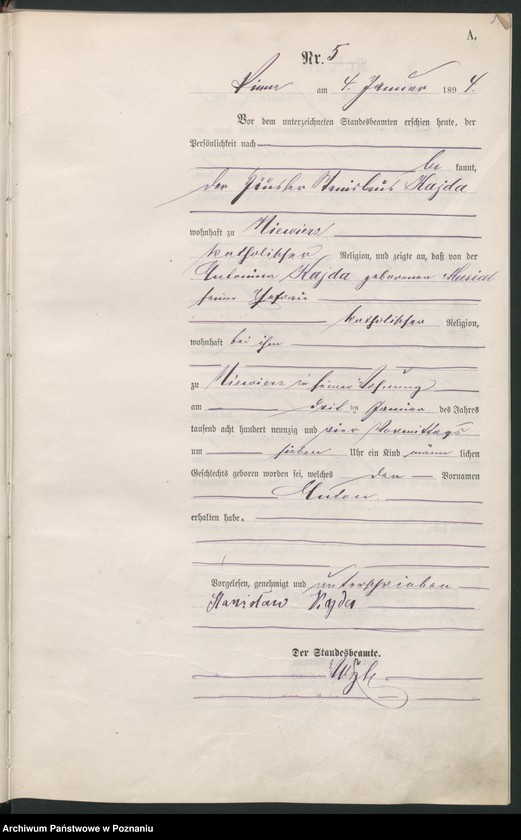 A.
Nr. 5
Pinne am 4. Januar 1894.
Vor dem unterzeichneten Standesbeamten erschien heute, der
Persönlichkeit nach
be kannt,
der Häusler Stanislaus Kajda
wohnhaft zu Niewierz
katholischer Religion, und zeigte an, daß von der
Antonina Kajda geborenen Musial
seiner Ehefrau
katholischer Religion,
wohnhaft bei ihm
zu Niewierz in seiner Wohnung
am drit ten Januar des Jahres
tausend acht hundert neunzig und vier Vormittags
um sieben Uhr ein Kind männ lichen
Geschlechts geboren worden sei, welches den Vornamen
Anton
erhalten habe.
Vorgelesen, genehmigt und unterschrieben
Stanisław Kajda
Der Standesbeamte.
Archiwum Państwowe w Poznaniu